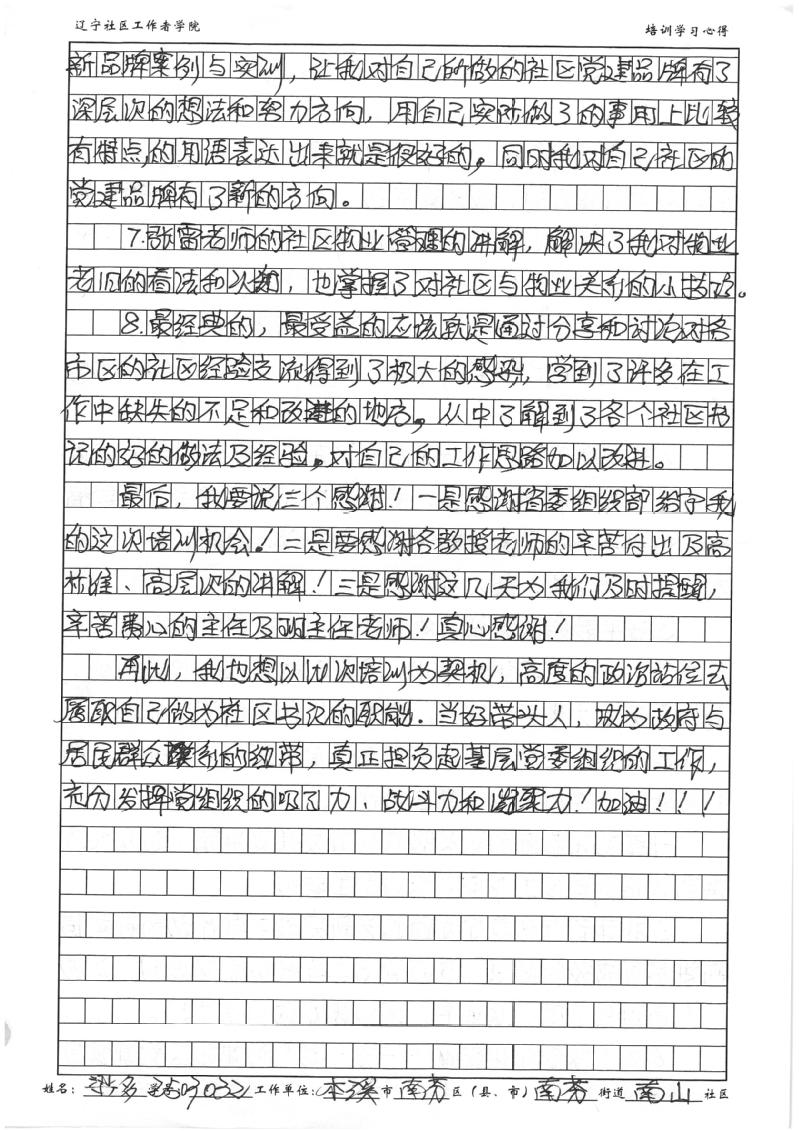 辽宁社区工作者学院 培训学习心得
新品牌案例与实训，让我对自己所做的社区党建品牌有了
深层次的想法和努力方向，用自己实际做了的事用上比较
有特点的用语表达出来就是很好的。同时我对自己社区的
党建品牌有了新的方向。
7.张雷老师的社区物业管理的讲解，解决了我对物业
老旧的看法和，也掌握了对社区与物业关系的小技巧。
8.最经典的，最受益的应该就是通过分享和讨论对各
市区的社区经验交流得到了极大的感染，学到了许多在工
作中缺失的不足和改进的地方。从中了解到了各个社区书
记的好的做法及经验。对自己的工作思路加以改进。
最后，我要说三个感谢！一是感谢省委组织部给予我
的这次培训机会！二是要感谢各教授老师的辛苦付出及高
标准、高层次的讲解！三是感谢这几天为我们及时提醒，
辛苦费心的主任及班主任老师！真心感谢！
再此，我也想以此次培训为契机，高度的政治站位去
履职自己做为社区书记的职能.当好带头人，成为政府与
居民群众联系的纽带，真正担负起基层党委组织的工作，
充分发挥党组织的吸引力、战斗力和凝聚力！加油！！！
姓名： 学号 工作单位：本溪市南芬区（县、市）南芬街道南山社区